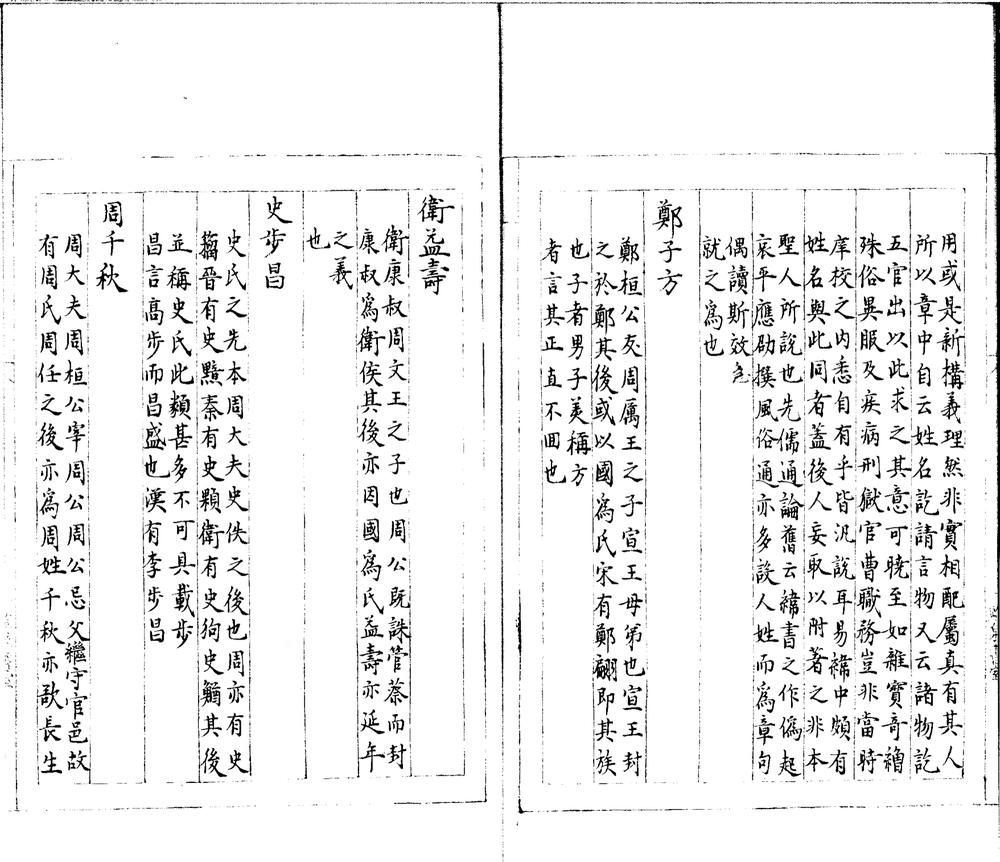 用或是新構義理然非實相配屬真有其人
所以章中自云姓名訖請言物又云諸物訖
五官出以此求之其意可曉至如雜寶奇繒
殊俗異服及疾病刑獄官曹職務豈非當時
庠校之内悉自有乎皆汎說耳易緯中頗有
姓名與此同者蓋後人妄取以附著之非本
聖人所說也先儒通論舊云緯書之作偽起
哀平應劭撰風俗通亦多設人姓而爲章句
偶讀斯效
就之爲也
鄭子方
鄭桓公友周厲王之子宣王母弟也宣王封
之於鄭其後或以國爲氏宋有鄭翩即其族
也子者男子美稱方
者言其正直不回也
衛益壽
衛康叔周文王之子也周公既誅管蔡而封
康叔爲衛侯其後亦因國爲氏益壽亦延年
之義
也
史步昌
史氏之先本周大夫史佚之後也周亦有史
籀晉有史黯秦有史顆衛有史狗史鰌其後
並稱史氏此類甚多不可具載步
昌言高步而昌盛也漢有李步昌
周千秋
周大夫周桓公宰周公周公忌父繼守官邑故
有周氏周任之後亦爲周姓千秋亦欲長生